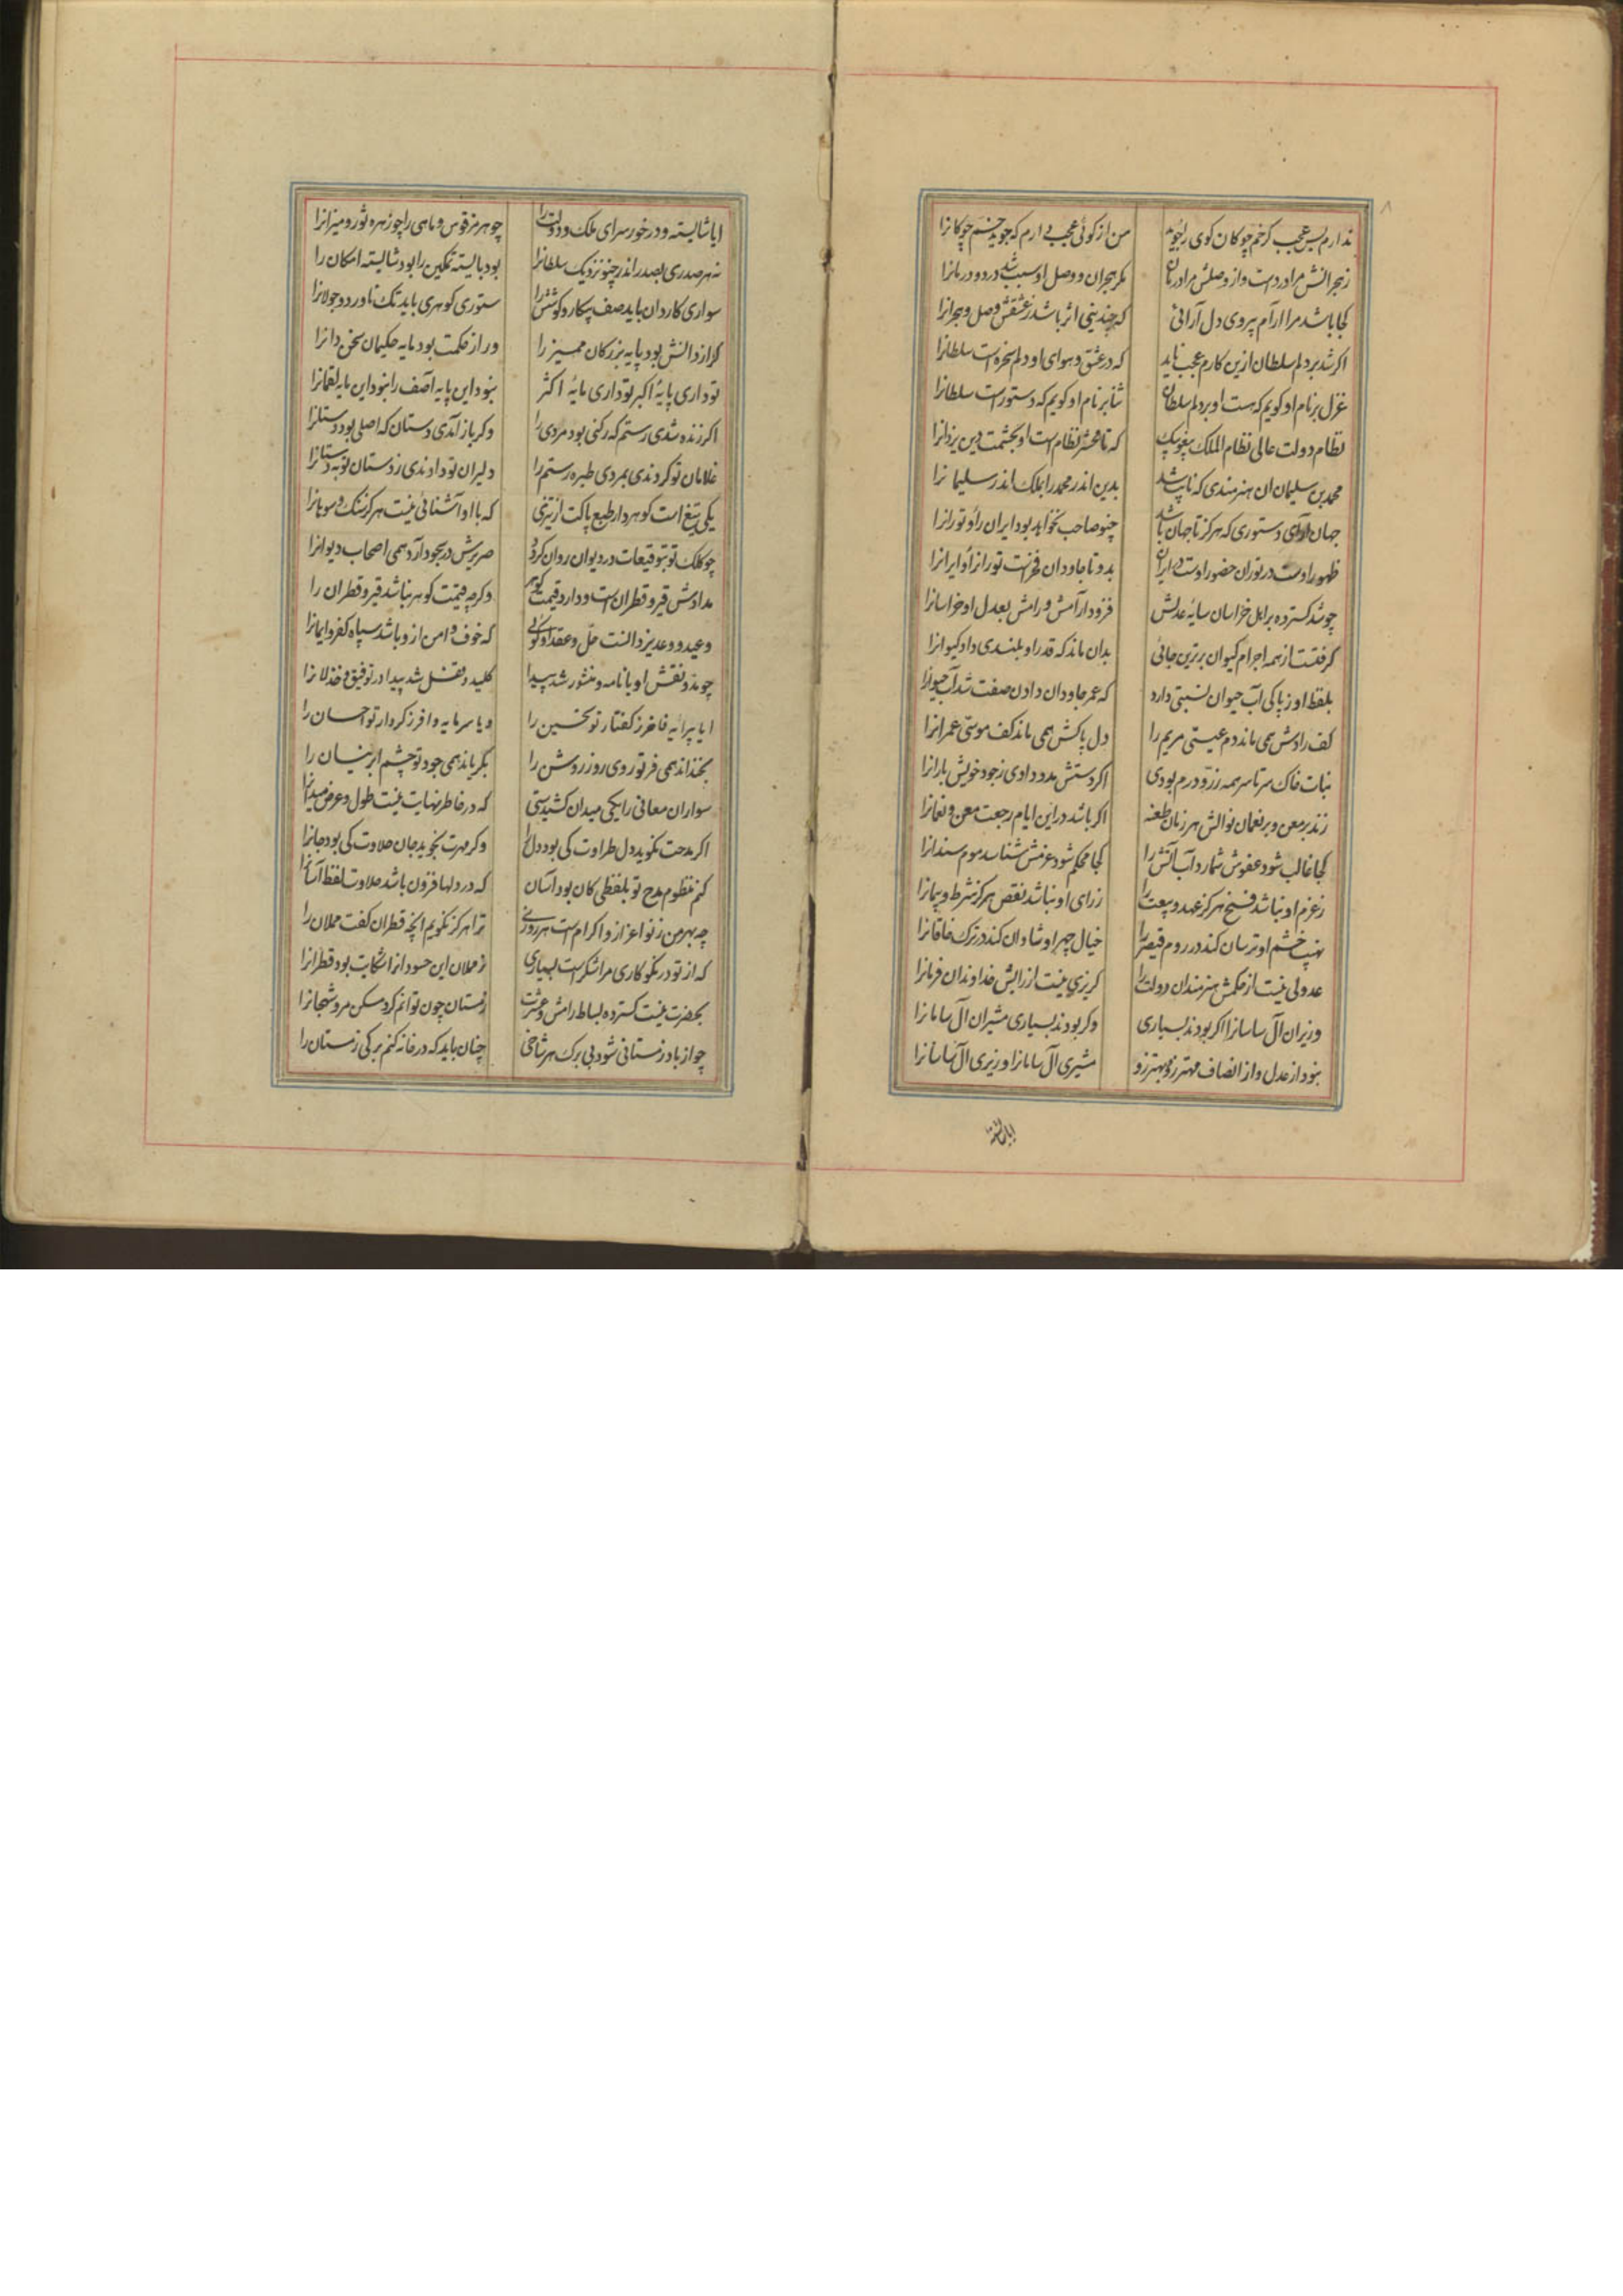 ندارم بس عجب کر خم چوکان کوی را جوید من از کوئی عجب دارم که جوید خم چوکانرا
زهجرانش مرا دردست و از وصلش مرا درمان مکر هجران و وصل او سبب شد درد و درمانرا
کجا باشد مرا آرام بیروی دل آرائی که چندینی اثر باشد ز عشقش وصل و هجرانرا
اکر شد بر دلم سلطان ازین کارم عجب ناید که در عشق و هوای او دلم سخره است سلطانرا
غزل بر نام او کویم که هست او بر دلم سلطان ثنا بر نام او کویم که دستور است سلطانرا
نظام دولت عالی نظام الملک پیغو بیک که تا محشر نظام است او بحشمت دین یزدانرا
محمد بن سلیمان ان هنرمندی که نایب شد بدین اندر محمد را بملک اندر سلیمانرا
جهان آرای دستوری که هرکز تا جهان باشد چنو صاحب نخواهد بود ایران را و تورانرا
ظهور اوست در توران حضور اوست در ایران بدو تا جاودان فخرست تورانرا و ایرانرا
چو شد کسترده بر اهل خراسان سایه عدلش فزود آرامش و رامش بعدل او خراسانرا
کرفتست از همه اجرام کیوان برترین جائی بدان ماند که قدر او بلندی داد کیوانرا
بلفظ او ز پاکی آب حیوان نسبتی دارد که عمر جاودان دادن صفت شد آب حیوانرا
کف رادش همی ماند دم عیسی مریم را دل پاکش همی ماند کف موسی عمرانرا
نبات خاک سرتاسر همه زر و درم بودی اکر دستش مدد دادی ز جود خویش بارانرا
زند بر معن و بر نعمان نوالش هر زمان طعنه اکر باشد در این ایام رجعت معن و نعمانرا
کجا غالب شود عفوش شمارد آب آتش را کجا محکم شود عزمش شناسد موم سندانرا
ز عزم او نباشد فسخ هرکز عهد و بیعت را ز رای او نباشد نقص هرکز شرط و پیمانرا
نهیب خشم او ترسان کند در روم قیصر را خیال چهر او شادان کند در ترک خاقانرا
عدولی نیست از حکمش هنرمندان دولت را کریزی نیست از رایش خداوندان فرمانرا
وزیران آل ساسانرا اکر بودند بسیاری وکر بودند بسیاری مشیران آل سامانرا
نبود از عدل و از انصاف مهتر زو و بهتر زو مشیری آل سامانرا وزیری آل ساسانرا
ایا شایسته
ایا شایسته و در خور سرای ملک و دولت را چو هرمز قوس و ماهی را چو زهره ثور و میزانرا
نه هر صدری بصدر اندر چنو نزدیک سلطانرا بود بایسته تمکین را بود شایسته امکان را
سواری کاردان باید صف پیکار و کوشش را ستوری کوهری باید تک ناورد و جولانرا
کر از دانش بود پایه بزرکان ممیز را ور از حکمت بود مایه حکیمان سخن دانرا
تو داری پایهٔ اکبر تو داری مایهٔ اکثر نبود این پایه آصف را نبود این مایه لقمانرا
اکر زنده شدی رستم که رکنی بود مردی را وکر باز آمدی دستان که اصلی بود دستانرا
غلامان تو کردندی بمردی طیره رستم را دلیران تو دادندی ز دستان توبه دستانرا
یکی تیغ است کوهردار طبع پاکت از تیزی که با او آشنائی نیست هرکز سنک و سوهانرا
چو کلک تو بتوقیعات در دیوان روان کردد صریرش در سجود آرد همی اصحاب دیوانرا
مدادش قیر و قطران است و دارد قیمت کوهر وکرچه قیمت کوهر نباشد قیر و قطران را
وعید و وعد یزدانست حل و عقد او کوئی که خوف و امن از و باشد سپاه کفر و ایمانرا
چو مد و نقش او با نامه و منشور شد پیدا کلید و قفل شد پیدا در توفیق و خذلانرا
ایا پیرایه فاخر ز کفتار تو تحسین را و یا سرمایه وافر ز کردار تو احسان را
بخنداند همی فر تو روی روز روشن را بکریاند همی جود تو چشم ابر نیسان را
سواران معانی را یکی میدان کشیدستی که در خاطر نهایت نیست طول و عرض میدانرا
اکر مدحت نکوید دل طراوت کی بود دل را وکر مهرت نجوید جان حلاوت کی بود جانرا
کنم منظوم مدح تو بلفظی کان بود آسان که در دلها فزون باشد حلاوت لفظ آسانرا
چه بهر من ز تو اعزاز و اکرام است هر روزی ترا هرکز نکویم انچه قطران کفت مملان را
که از تو در نکوکاری مرا شکر است بسیاری ز مملان این حسود انرا شکایت بود قطرانرا
بحضرت نیست کسترده بساط رامش و عشرت زمستان چون توانم کرد مسکن مرو شجانرا
چو از باد زمستانی شود بی برک هر شاخی چنان باید که در خانه کنم برکی زمستان را